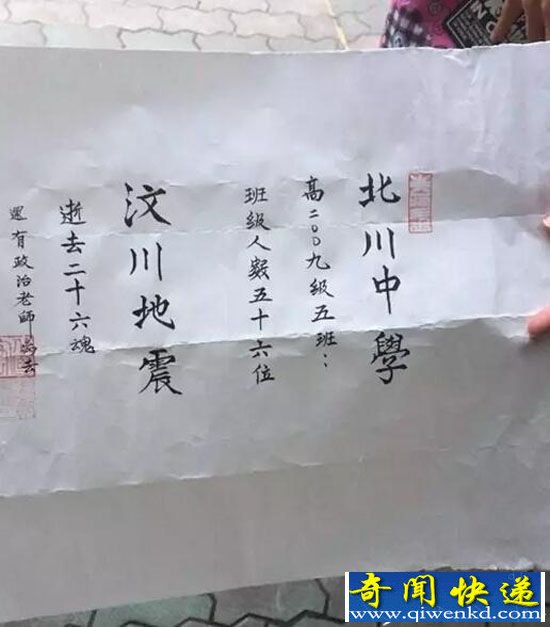 北川中學
高二〇〇九級五班：
班級人數五十六位
汶川地震
逝去二十六魂
還有政治老師
奇闻快递
www.qiwenkd.com